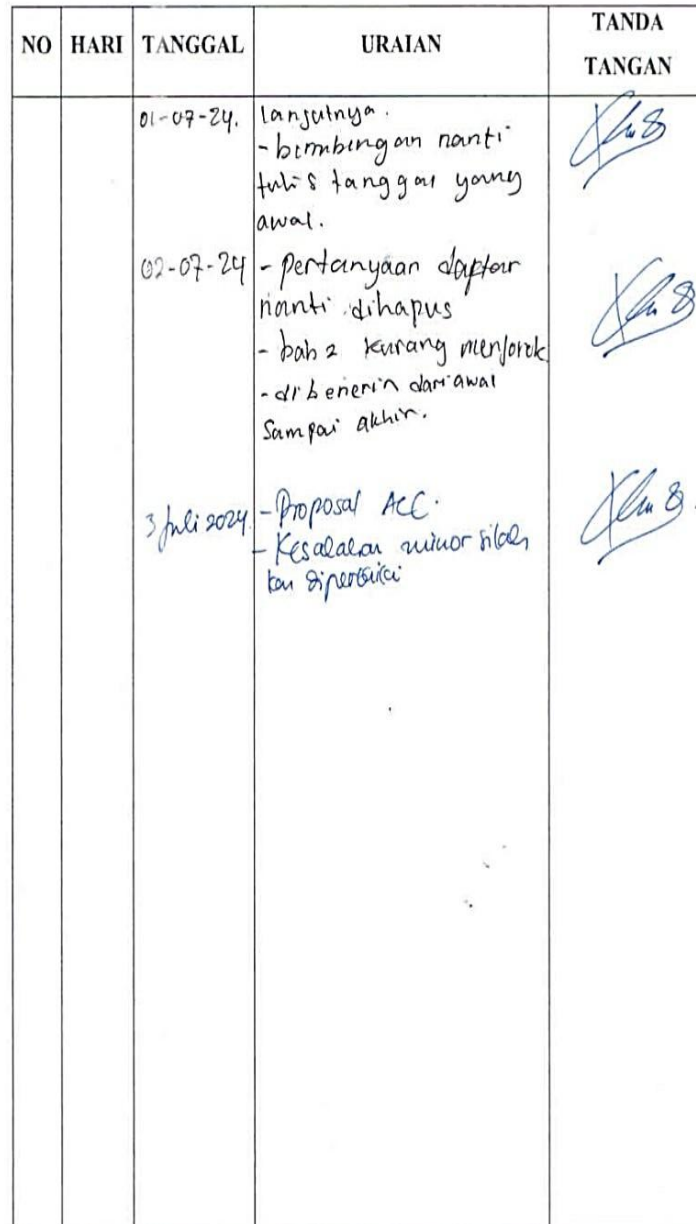 NO HARI TANGGAL URAIAN TANDA TANGAN
01-07-24. lanjutnya.
- bimbingan nanti
tulis tanggal yang
awal.
02-07-24 - pertanyaan daptar
nanti dihapus
- bab 2 kurang menjorok
- di benerin dari awal
sampai akhir.
3 Juli 2024 - Proposal ACC.
- Kesalahan minor silah
kan diperbaiki